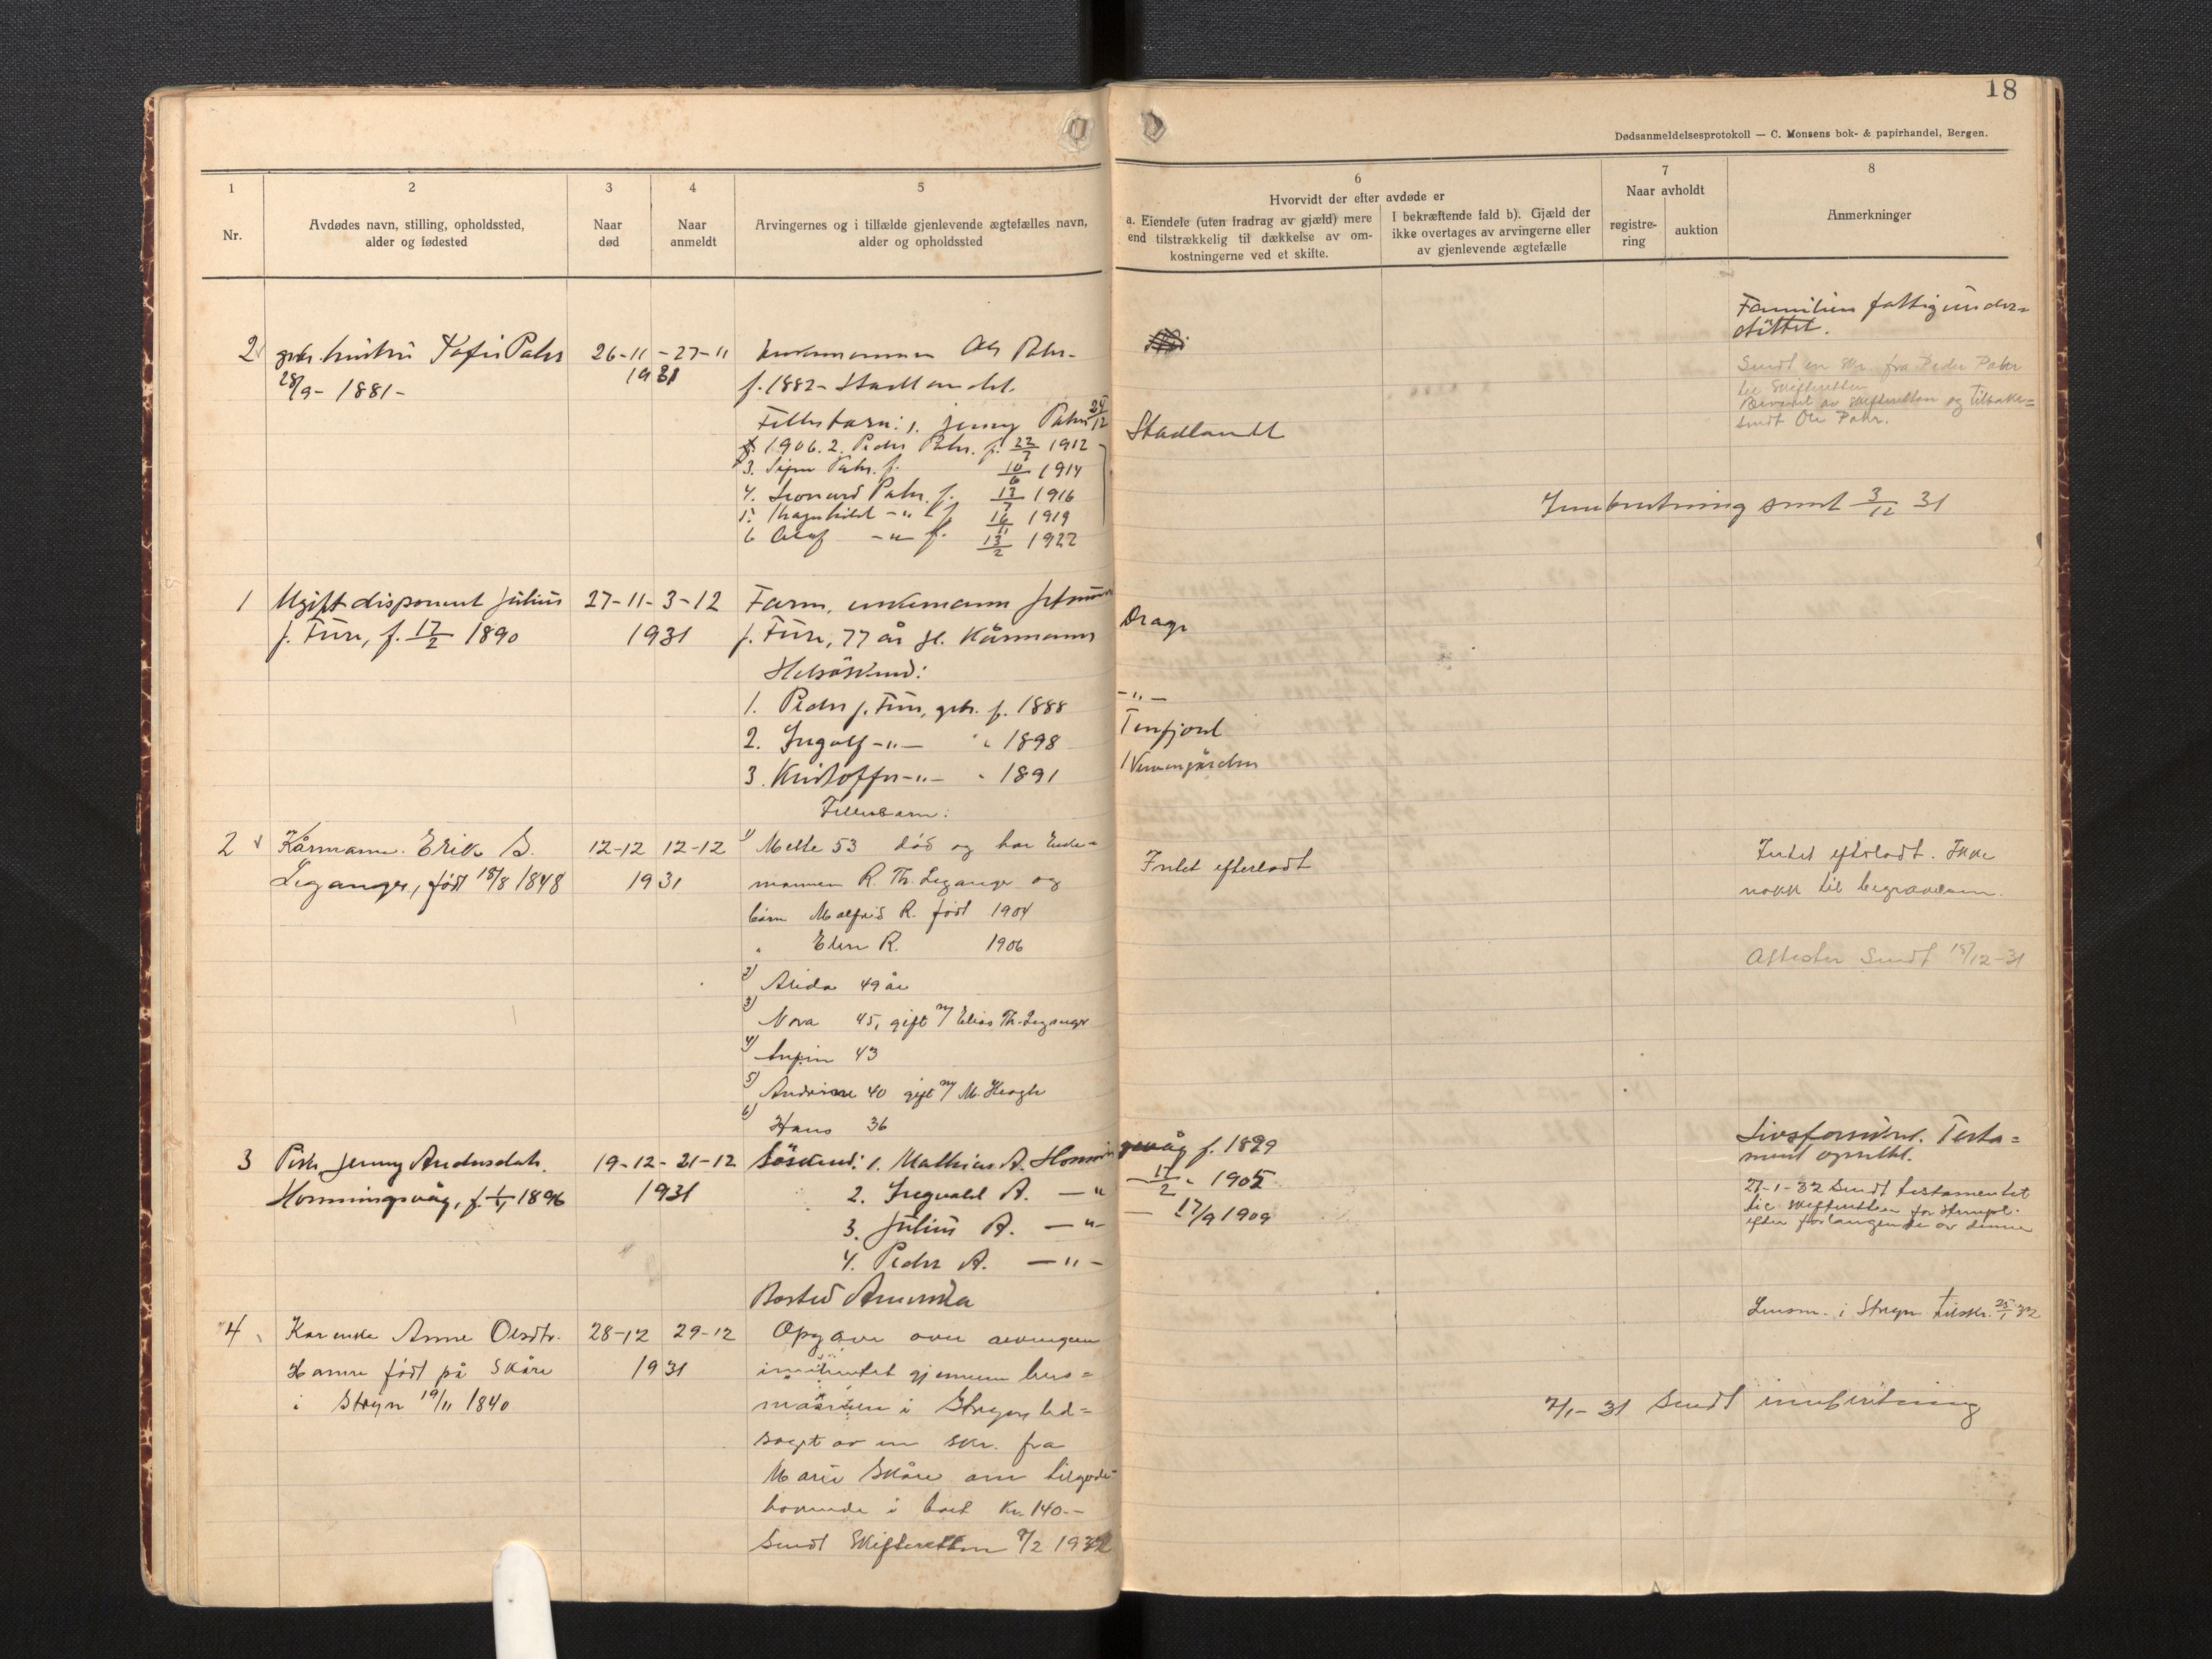 18
Dødsanmeldelsesprotokoll — C. Monsens bok- & papirhandel, Bergen.
1
Nr.
2
Avdødes navn, stilling, opholdssted,
alder og fødested
3
Naar
død
4
Naar
anmeldt
5
Arvingernes og i tilfælde gjenlevende ægtefælles navn,
alder og opholdssted
6
Hvorvidt der efter avdøde er
a. Eiendele (uten fradrag av gjæld) mere
end tilstrækkelig til dækkelse av om-
kostningerne ved et skifte.
I bekræftende fald b). Gjæld der
ikke overtages av arvingerne eller
av gjenlevende ægtefælle
7
Naar avholdt
registre-
ring
auktion
8
Anmerkninger
2 grbr. hustru Sofie Pahr 26-11-27-11
28/9- 1881- 1931
Enkemannen Ole Pahr-
f. 1882- Stadlandet.
Fellesbarn: 1. Jenny Pahr 24/12
f. 1906. 2. Peder Pahr. f. 22/7 1912
3. Pahr. f. 10/6 1914
4. Leonard Pahr. f. 13/7 1916
5. Ragnhild -"- f 16/11 1919
6 Olaf -"- f. 13/2 1922
Stadlandet
Familien fattigunder=
støttet.
Sendt en skr. fra Peder Pahr
til Skifteretten
av skifteretten og tilbake=
sendt Ole Pahr.
Innberetning sendt 3/12 31
1 Ugift disponent Julius 27-11-3-12
J. Fure, f. 17/2 1890 1931
Farm, enkemann
J. Fure, 77 år gl. Kårmann
Drage
Helsøskend:
1. Peder J. Fure, grbr. f. 1888 -"-
2. Ingolf -"- " 1898 Tenfjord
3. Kristoffer -"- " 1891
Fellesbarn:
2 Kårmann. Erik S. 12-12 12-12
Leganger, født 18/8 1848 1931
1) Mette 53 død og har Enke=
mannen R. Th. Leganger og
barn Malfrid R. født 1904
" Elen R. 1906
2) Alida 49 år
3) Nora 45, gift m/ Elias Th. Leganger
4) 43
5) Andrine 40 gift m/ M. Hoogh
6) Hans 36
Intet efterladt
Intet efterladt. Ikke
nokk til begravelsen.
Attester Sendt 15/12-31
3 Jenny Andersdatr. 19-12-21-12
Honningsvåg, f. 1/1 1896 1931
Søskend: 1. Mathias A. Honningsvåg f. 1899
2. Ingvald A. -"- 17/2 " 1905
3. Julius A. -"- 27/9 1909
4. Peder A. -"-
Bosted Amerika
Livsforsikret. Testa=
ment oprettet.
27-1-32 Sendt testamentet
til skifteretten for stempl.
efter forlangende av denne
4 Kårenke Anne Olsdtr. 28-12 29-12
Hamre født på Skåre 1931
i Stryn 19/11 1840
Opgave over arvingene
innhentet gjennem lens=
mannen i Stryn, led=
saget av en skr. fra
Marie Skåre om tilgode-
havende i boet Kr. 140.-
Sendt Skifteretten 8/2 1932
Lensm. i Stryn tilskr. 25/1 32
7/1-31 Sendt innberetning